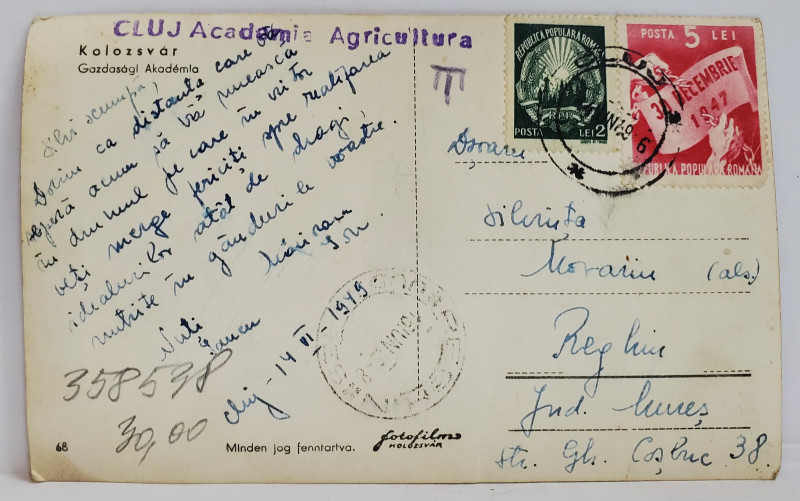 CLUJ Academia Agricultura
Kolozsvár
Gazdasági Akadémia
T
REPUBLICA POPULARA ROMANA
RPR
POSTA LEI 2
POSTA 5 LEI
30 DECEMBRIE
1947
REPUBLIKA POPULARA ROMANA
scumpă,
Dorim ca distanta care vă
separă acum să vă unească
în drumul pe care în viitor
veți merge fericiți spre realizarea
idealurilor atât de dragi,
nutrite în gândurile voastre.
Nuti
Ion
Cluj - 14 VI - 1949
358538
30,00
Silvința
Moraru (als)
Reghin
Jud. Mureș
str. Gh. Coșbuc 38.
68
Minden jog fenntartva.
fotofilm
KOLOZSVÁR